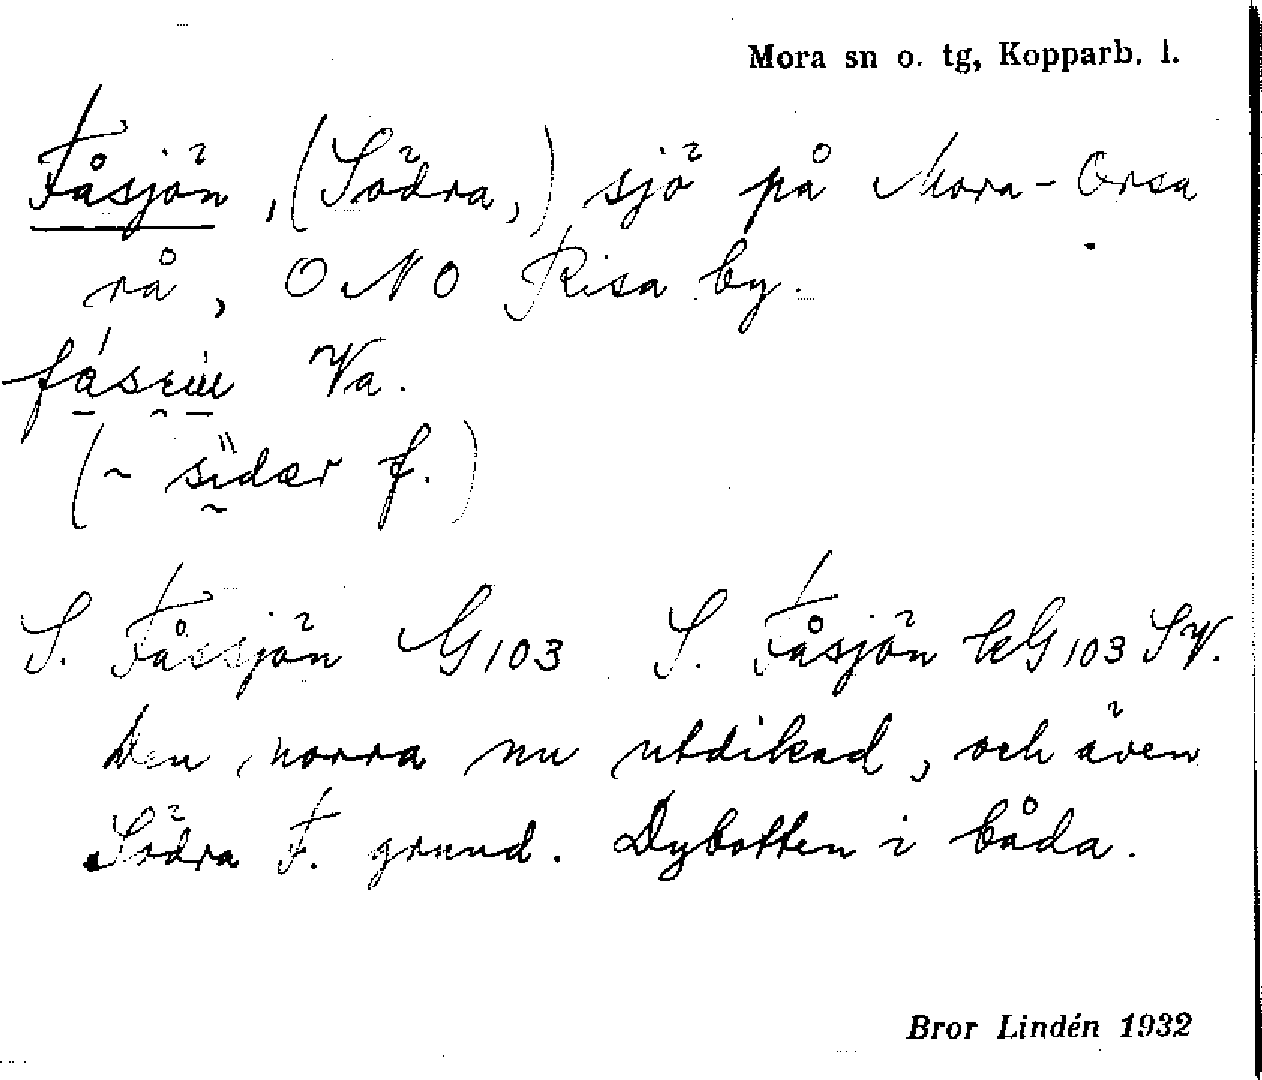 Mora sn o. tg, Kopparb. l.
Fåsjön, (Södra,) sjö på Mora-Orsa
rå, ONO Risa by.
Va.
(~ sìdær f.)
S. Fåssjön G 103 S. Fåsjön G 103 SV.
Den norra nu utdikad, och även
Södra F. grund. Dybotten i båda.
Bror Lindén 1932